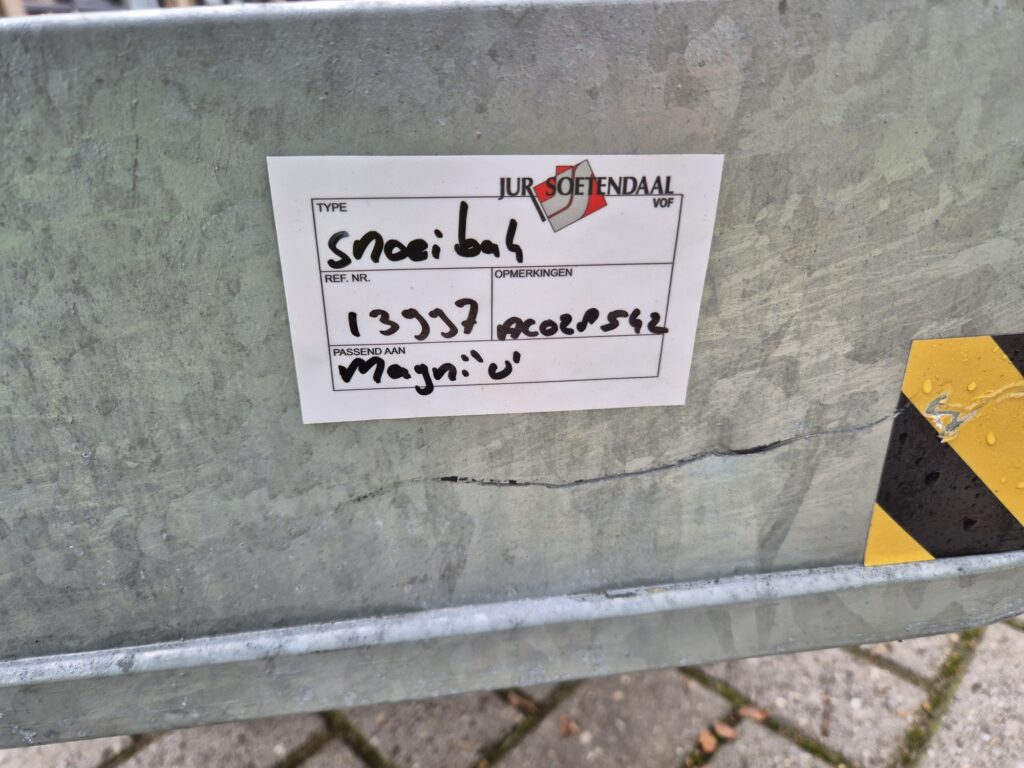 JUR SOETENDAAL
VOF
TYPE
Snoeibak
REF. NR.
13997
OPMERKINGEN
AC02P542
PASSEND AAN
Magni